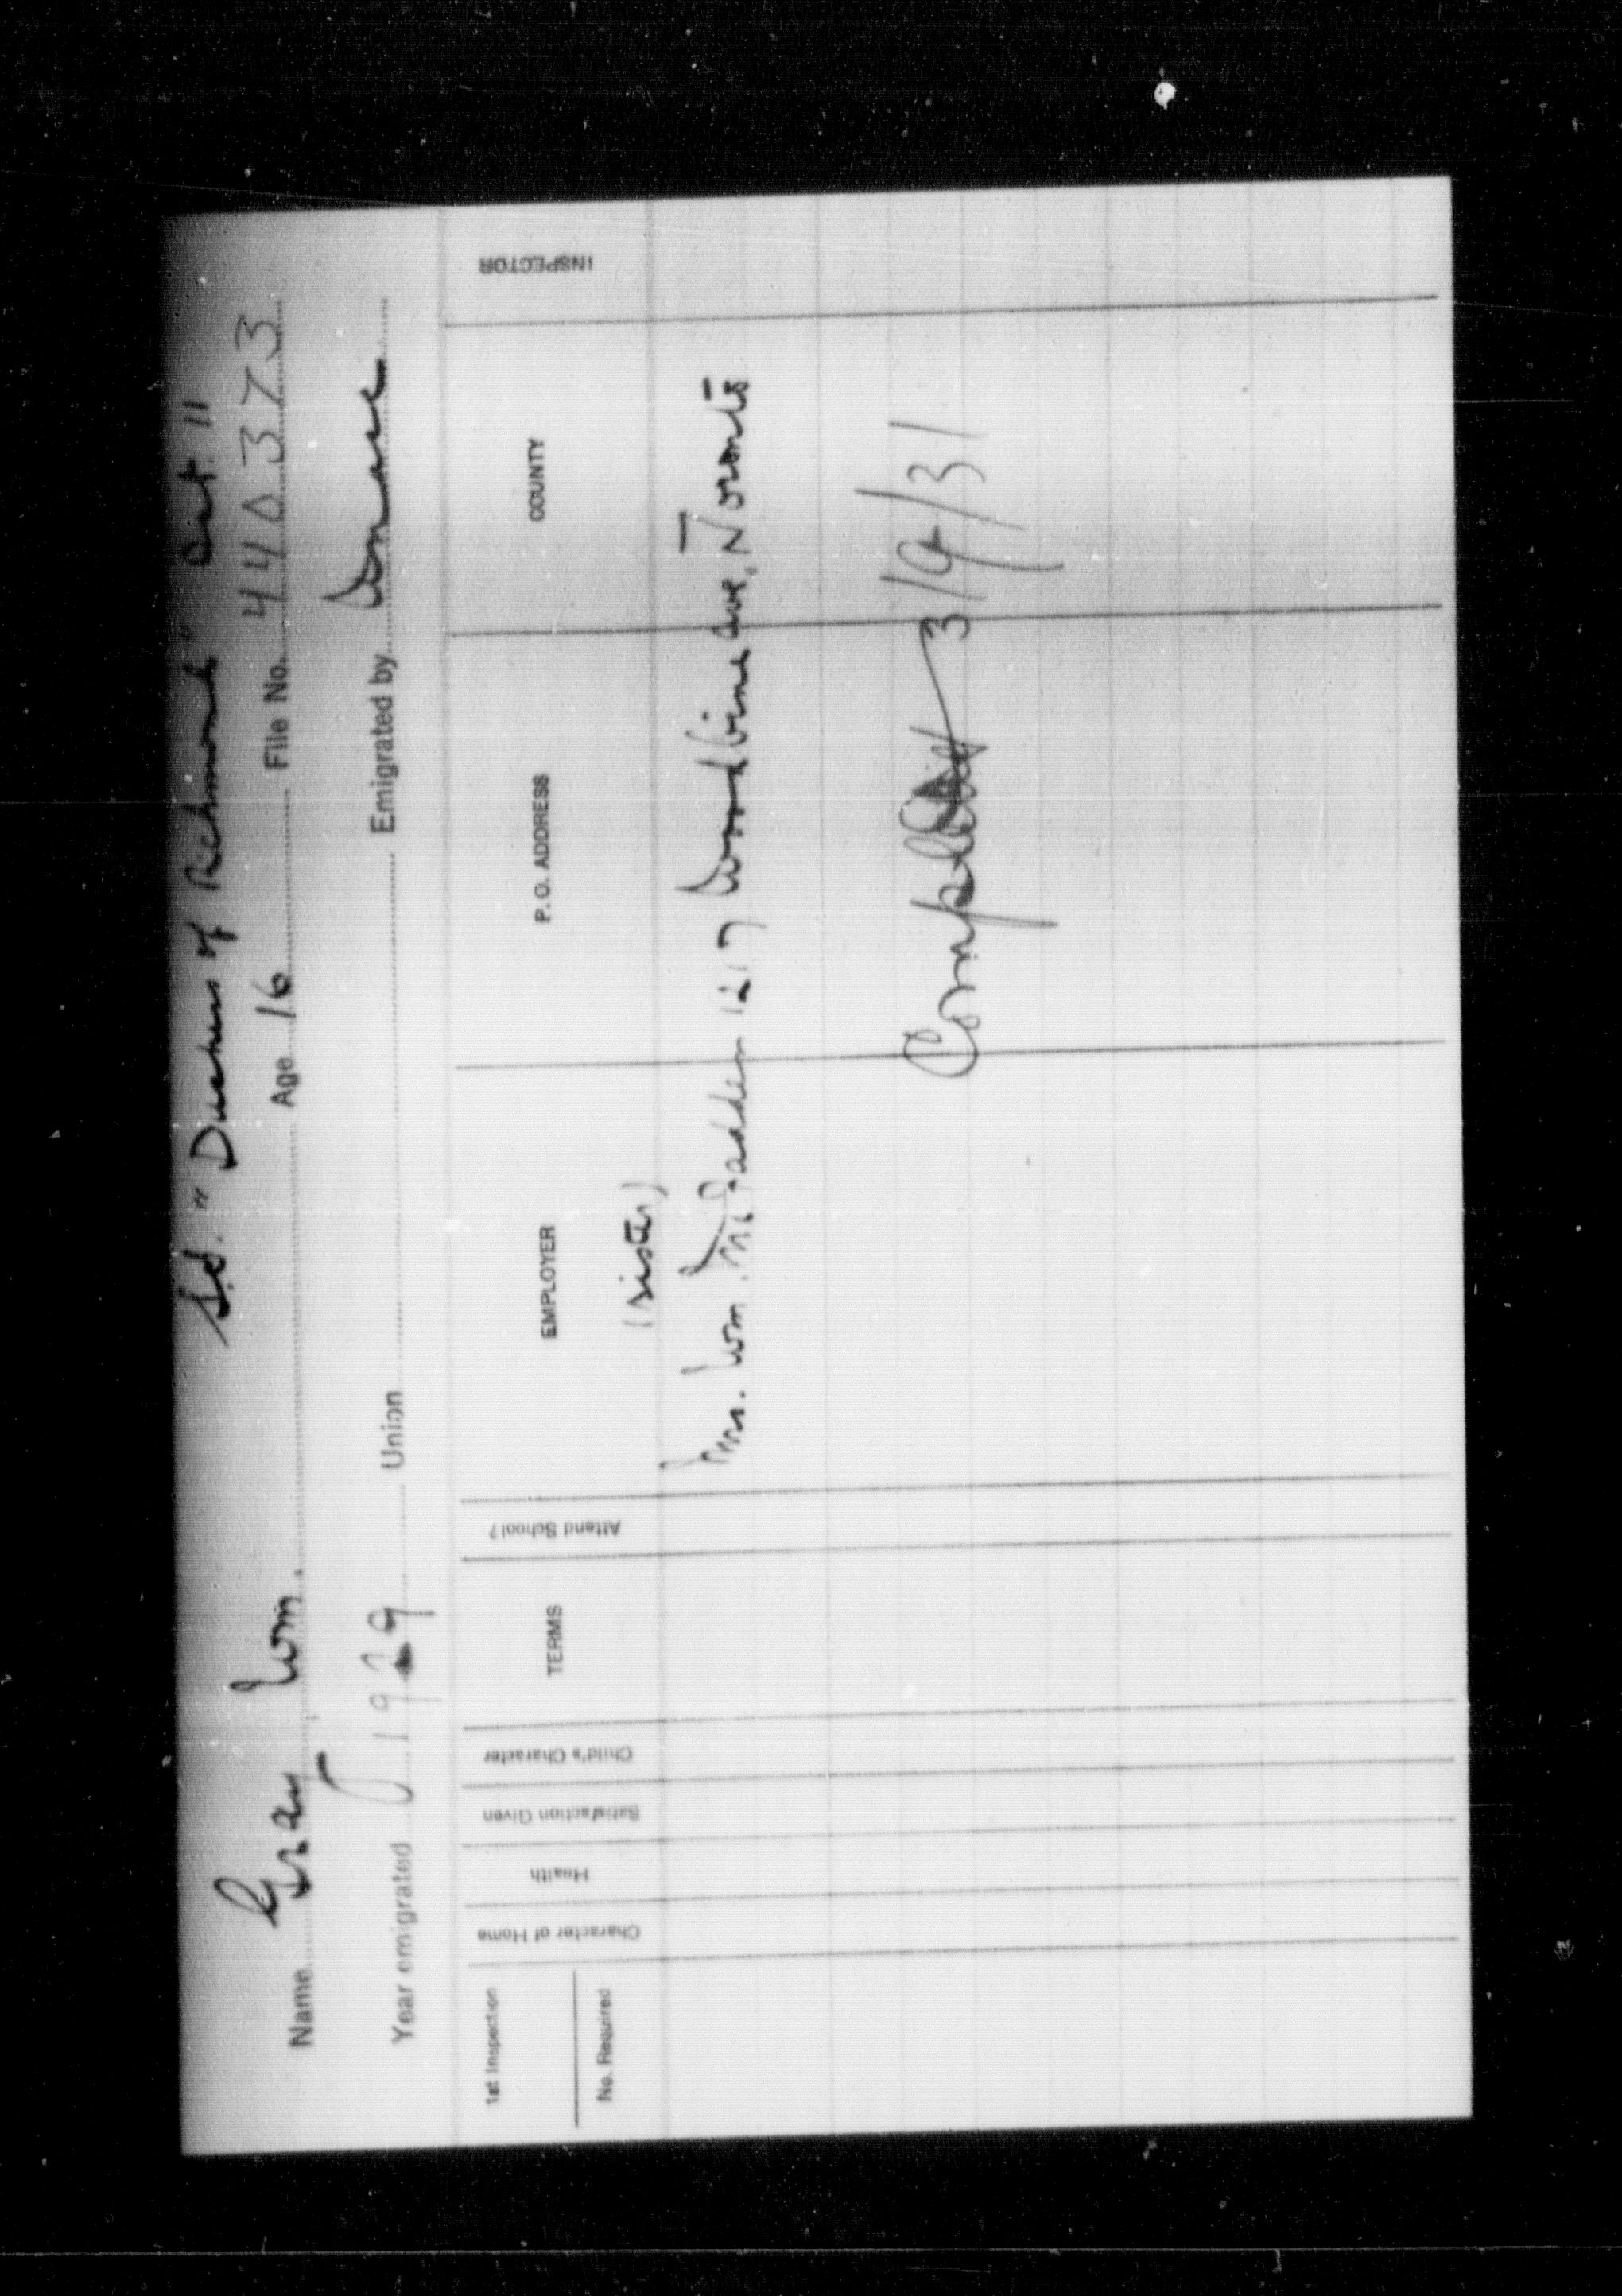 S.S. "Duchess of Richmond" Oct. 11
Name Gray Wm. Age 16 File No. 440373
Year emigrated 1929 Union Emigrated by
1st Inspection
No. Required
Character of Home
Health
Satisfaction Given
Child's Character
TERMS
Attend School?
EMPLOYER
P. O. ADDRESS
COUNTY
INSPECTOR
(sister)
Mrs. Wm. McFadden 1217 Woodbine ave., Toronto
3/9/31